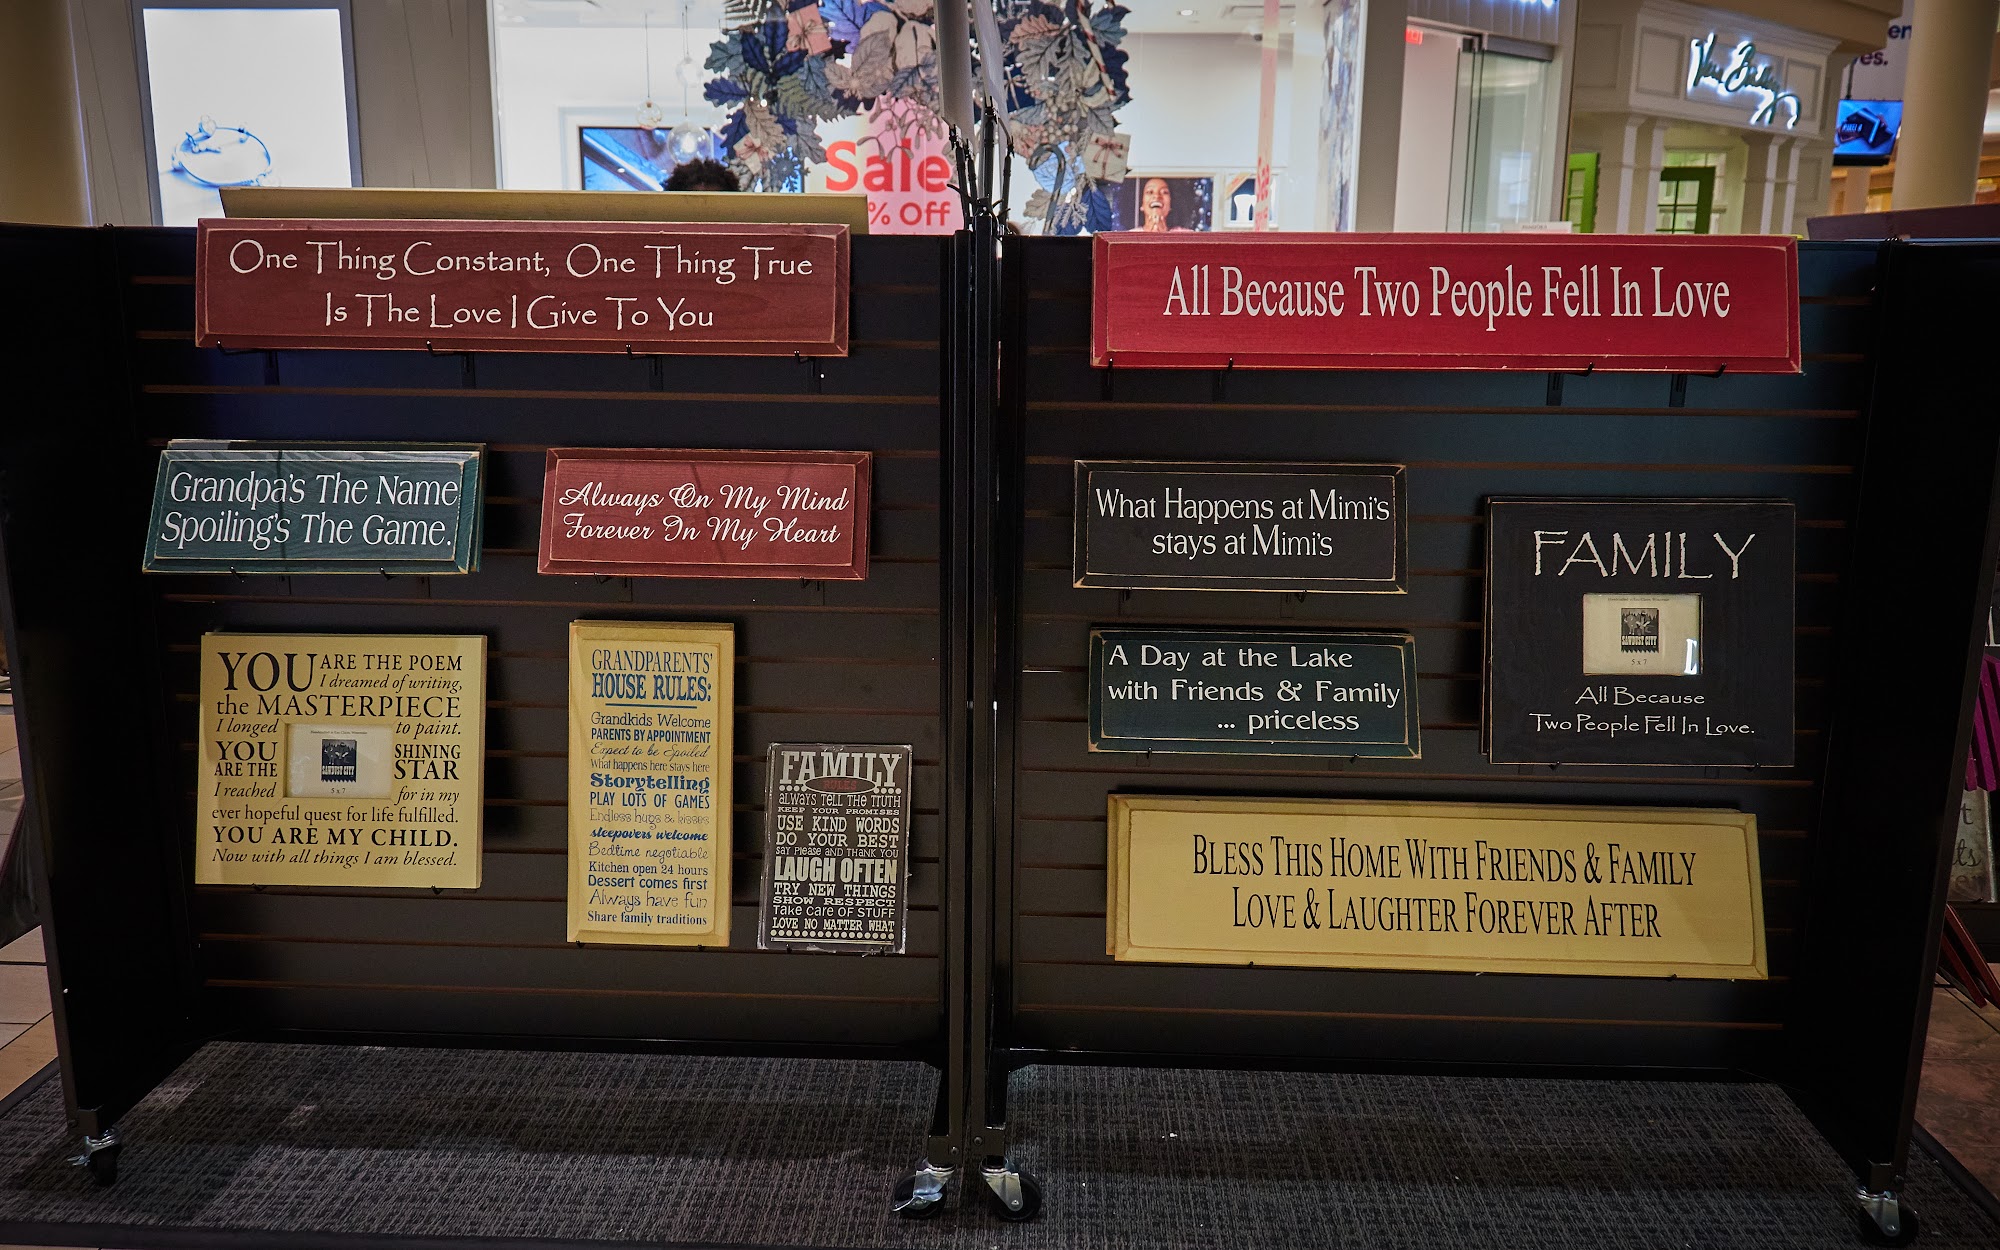 Sale
% Off
Vera Bradley
One Thing Constant, One Thing True
Is The Love I Give To You
All Because Two People Fell In Love
Grandpa's The Name
Spoiling's The Game.
Always On My Mind
Forever In My Heart
What Happens at Mimi's
stays at Mimi's
FAMILY
SAWDUST CITY
5 x 7
All Because
Two People Fell In Love.
A Day at the Lake
with Friends & Family
... priceless
YOU ARE THE POEM
I dreamed of writing,
the MASTERPIECE
I longed to paint.
YOU SHINING
ARE THE STAR
I reached for in my
ever hopeful quest for life fulfilled.
YOU ARE MY CHILD.
Now with all things I am blessed.
SAWDUST CITY
5 x 7
GRANDPARENTS'
HOUSE RULES:
Grandkids Welcome
PARENTS BY APPOINTMENT
Expect to be Spoiled
What happens here stays here
Storytelling
PLAY LOTS OF GAMES
Endless hugs & kisses
sleepovers welcome
Bedtime negotiable
Kitchen open 24 hours
Dessert comes first
Always have fun
Share family traditions
FAMILY
RULES
ALWAYS TELL THE TRUTH
KEEP YOUR PROMISES
USE KIND WORDS
DO YOUR BEST
SAY PLEASE AND THANK YOU
LAUGH OFTEN
TRY NEW THINGS
SHOW RESPECT
Take care OF STUFF
LOVE NO MATTER WHAT
BLESS THIS HOME WITH FRIENDS & FAMILY
LOVE & LAUGHTER FOREVER AFTER